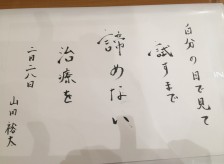 自分の目で見て
試すまで
諦めない
治療を
二日二八日
山田裕太